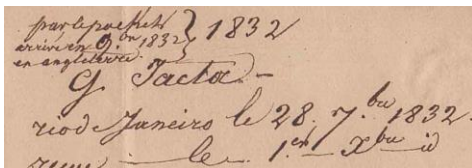 par le packet
arrivé en 9.bre 1832 } 1832
en angleterre.
G. Jacta -
rio de Janeiro le 28. 7.bre 1832.
le 1.er Xbre id